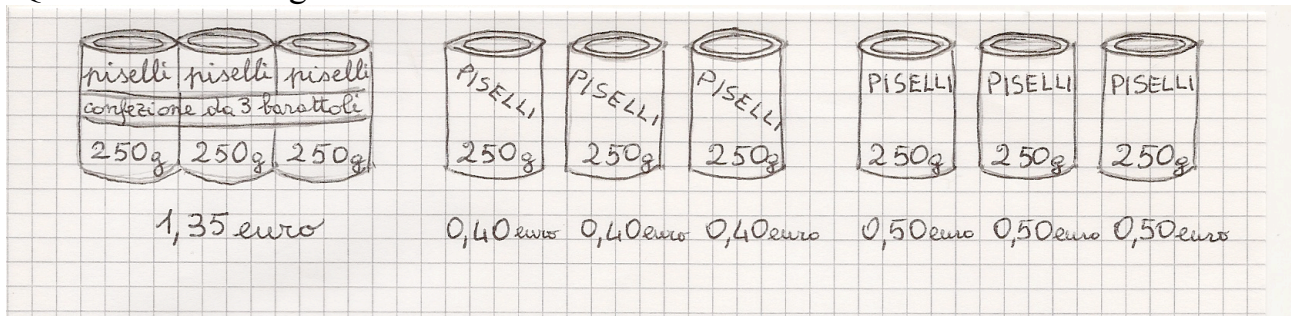 piselli piselli piselli
confezione da 3 barattoli
250g 250g 250g
1,35 euro
PISELLI PISELLI PISELLI
250g 250g 250g
0,40 euro 0,40 euro 0,40 euro
PISELLI PISELLI PISELLI
250g 250g 250g
0,50 euro 0,50 euro 0,50 euro